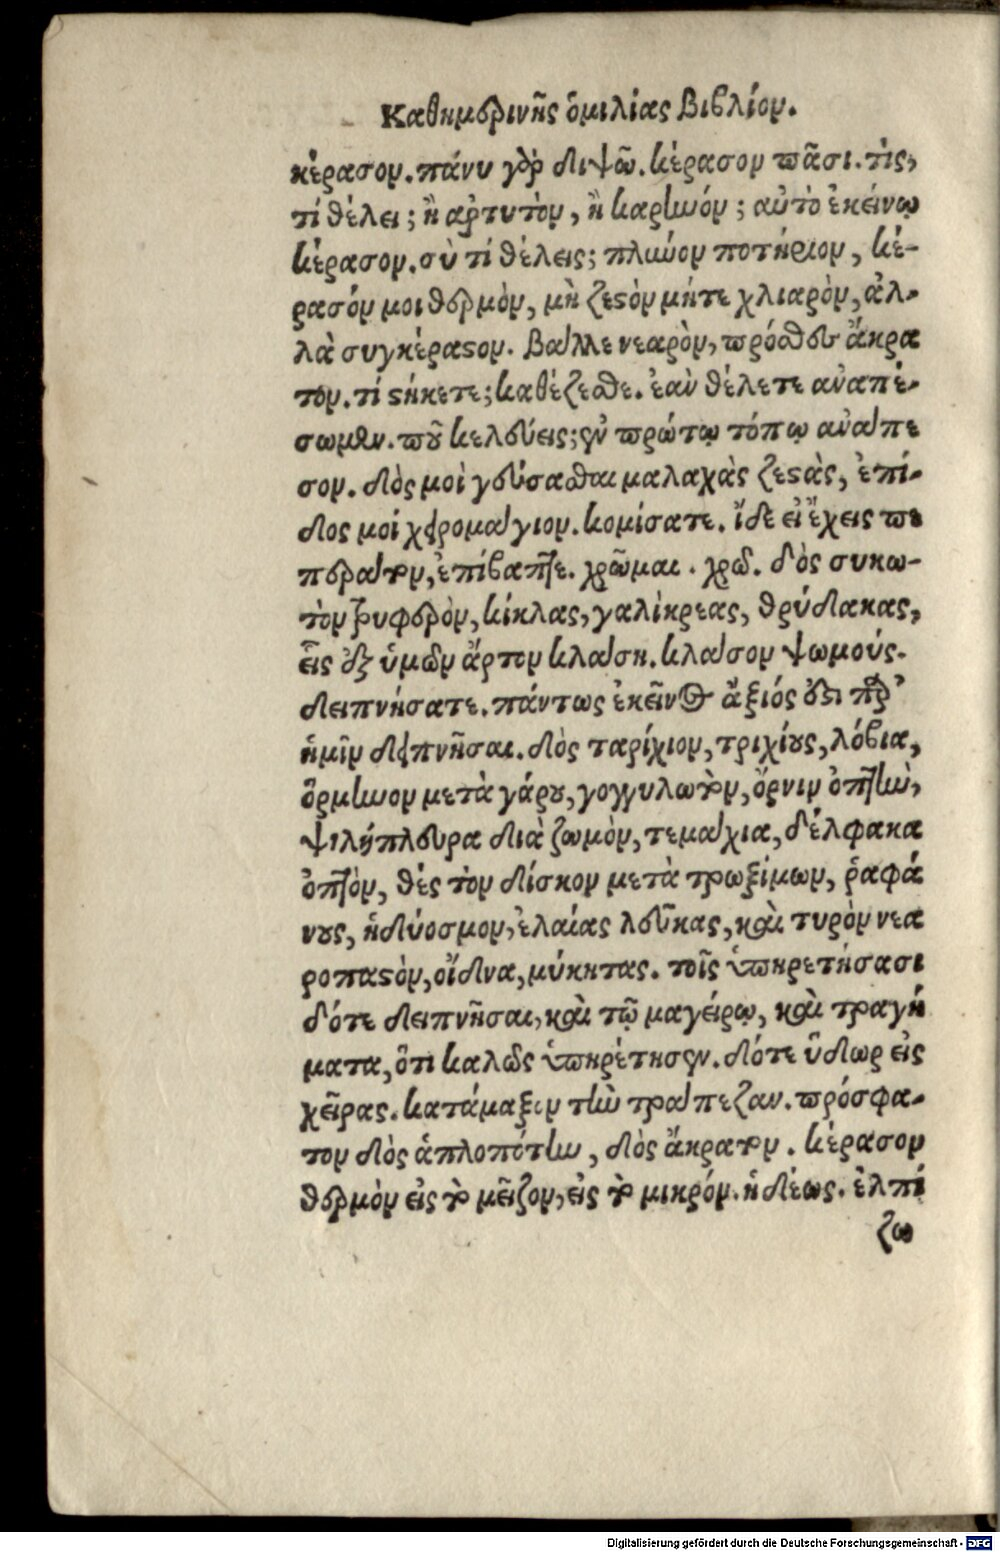 Καθημερινῆς ὁμιλίας βιβλίον.
κέρασον. πάνυ γὰρ διψῶ. κέρασον πᾶσι. τίς,
τί θέλει; ἢ ἀρτυτὸν, ἢ καρηνόν; αὐτὸ ἐκείνῳ
κέρασον. σὺ τί θέλεις; πλῆνον ποτήριον, κέ-
ρασόν μοι θερμὸν, μὴ ζεστὸν μήτε χλιαρὸν, ἀλ-
λὰ συγκέραστον. βάλλε νεαρὸν, πρόσθες ἄκρα
τον. τί στήκετε; καθέζεσθε. ἐὰν θέλετε ἀναπέ-
σωμεν. ποῦ κελεύεις; ἐν πρώτῳ τόπῳ ἀνάπε
σον. δὸς μοὶ γεύσασθαι μαλαχὰς ζεστὰς, ἐπί-
δος μοί χειρομάγιον. κομίσατε. ἴδε εἰ ἔχεις πε
περάτον, ἐπίβαπτε. χρῶμαι. χρῶ. δὸς συκω-
τὸν τρυφερὸν, κίκλας, γαλίκρεας, θρύδακας,
εἷς ἐξ ὑμῶν ἄρτον κλάση. κλάσον ψωμούς.
δειπνήσατε. πάντως ἐκεῖνος ἄξιός ἐστι παρ'
ἡμῖν δειπνῆσαι. δὸς ταρίχιον, τριχίους, λόβια,
ὅρμηνον μετὰ γάρου, γογγυλωτὸν, ὄρνιν ὀπτὴν,
ψιλήπλευρα διὰ ζωμὸν, τεμάχια, δέλφακα
ὀπτὸν, θές τὸν δίσκον μετὰ τρωξίμων, ῥαφά
νους, ἡδύοσμον, ἐλαίας λεῦκας, καὶ τυρὸν νεα
ροπαστὸν, οἴδνα, μύκητας. τοῖς ὑπηρετήσασι
δότε δειπνῆσαι, καὶ τῷ μαγείρῳ, καὶ τραγή
ματα, ὅτι καλῶς ὑπηρέτησεν. δότε ὕδωρ εἰς
χεῖρας. κατάμαξιν τὴν τράπεζαν. πρόσφα-
τον δὸς ἁπλοπότην, δὸς ἄκρατον. κέρασον
θερμὸν εἰς τὸ μεῖζον, εἰς τὸ μικρόν. ἡδέως. ἐλπί
ζω
Digitalisierung gefördert durch die Deutsche Forschungsgemeinschaft - DFG